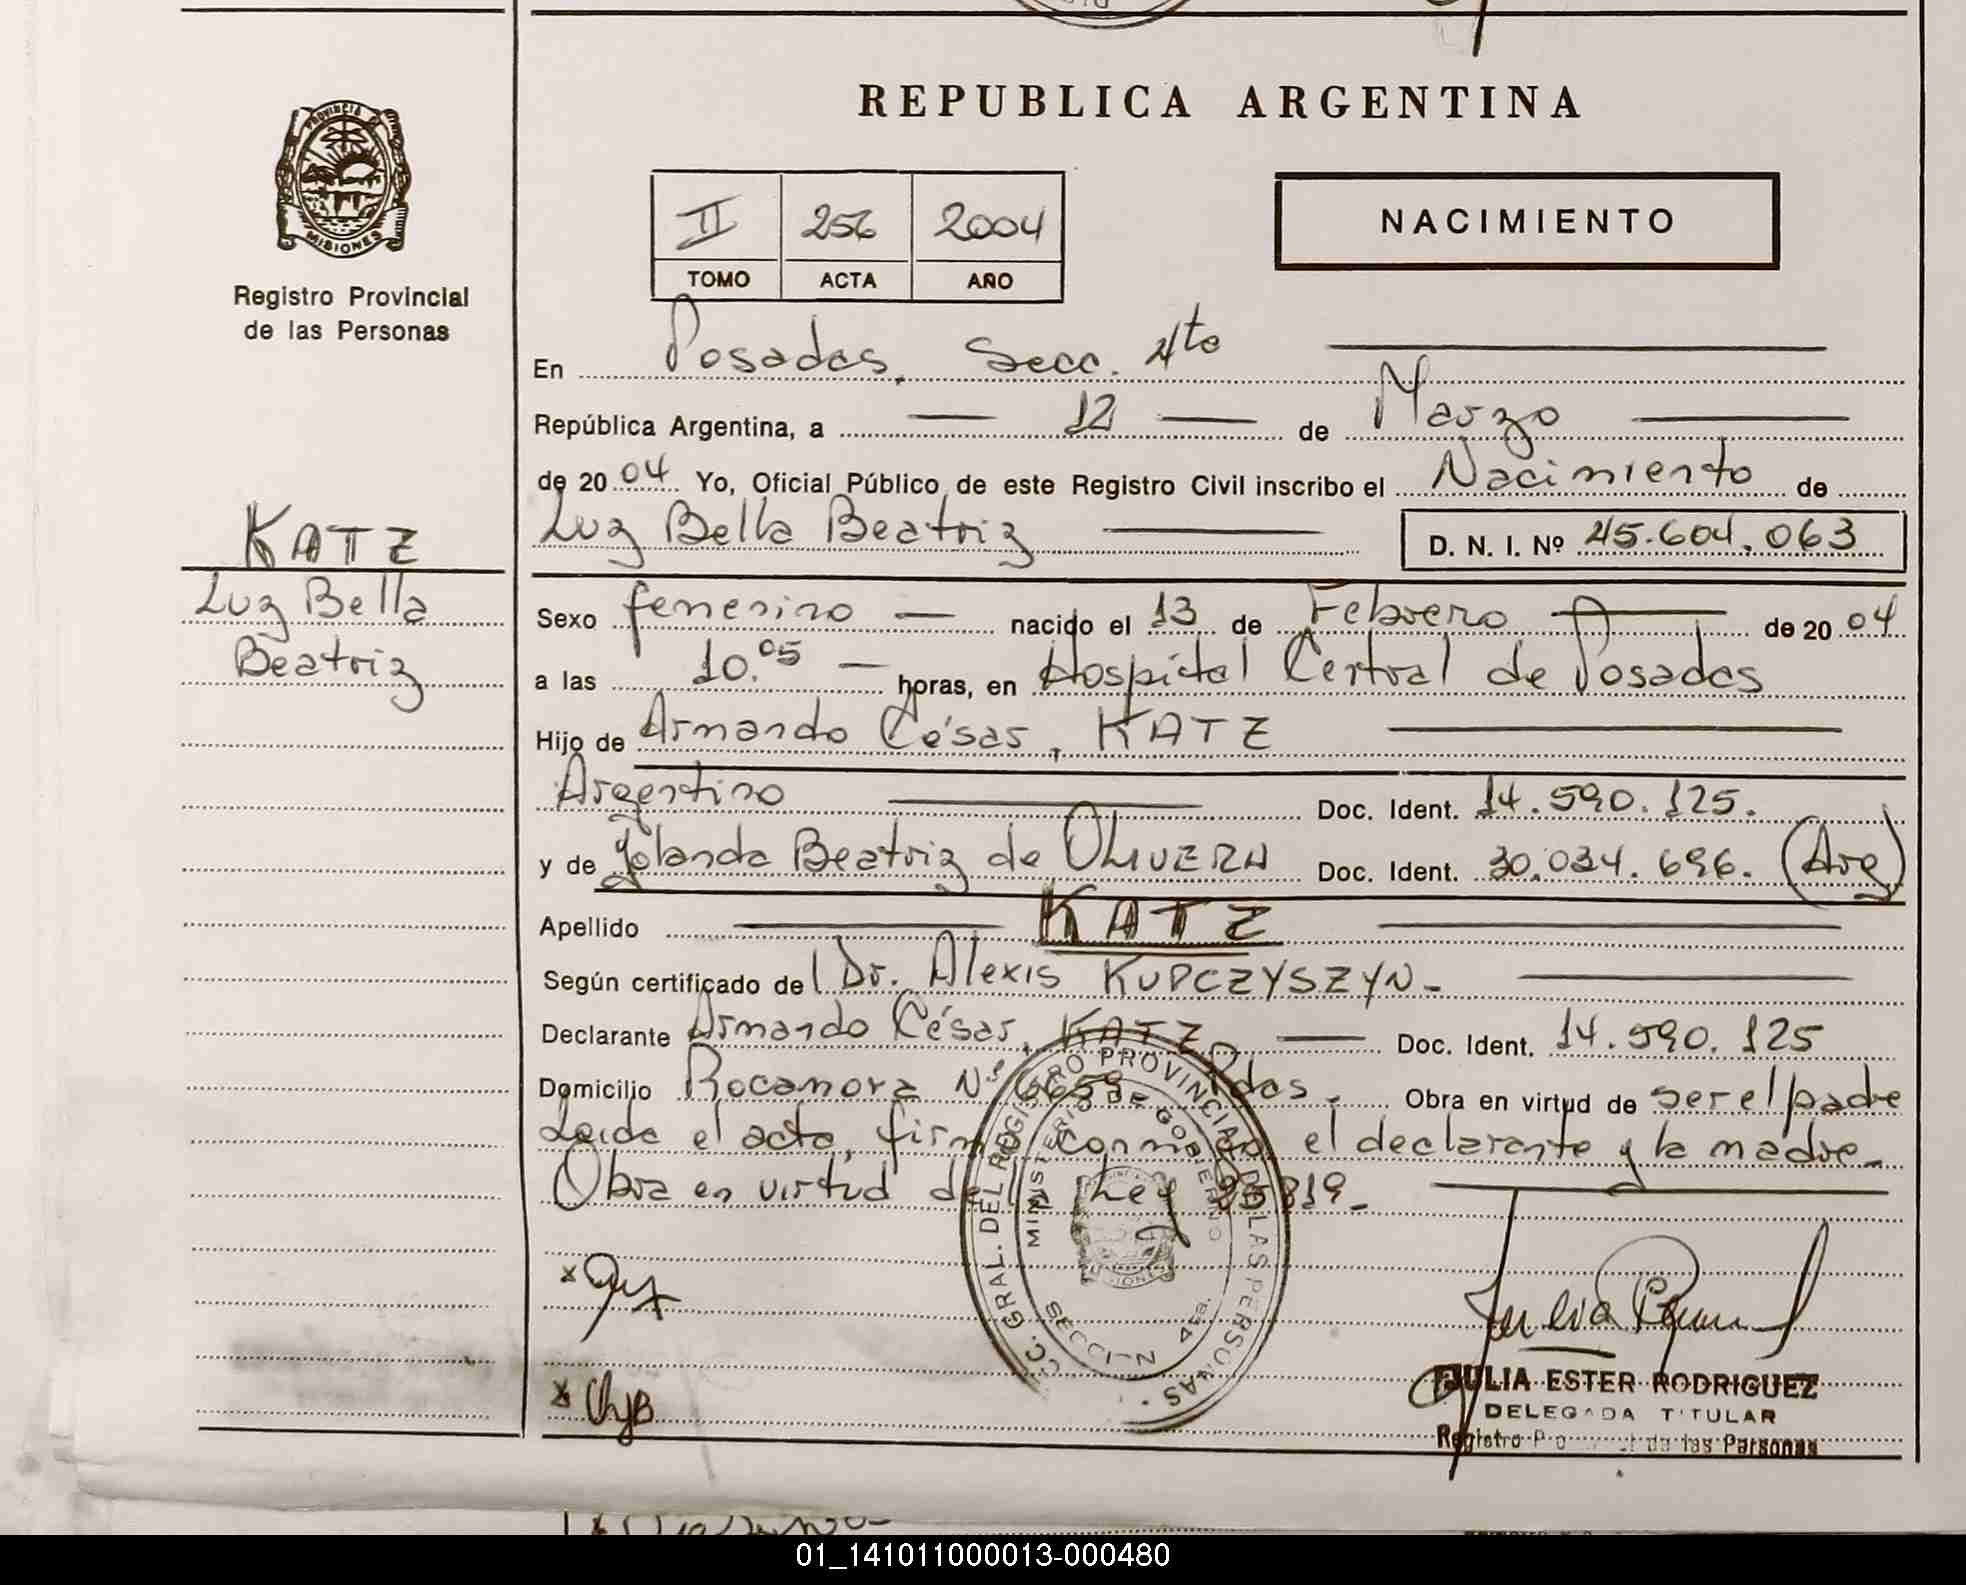 REPUBLICA ARGENTINA
PROVINCIA DE
MISIONES
Registro Provincial
de las Personas
II 256 2004
TOMO ACTA AÑO
NACIMIENTO
En Posadas, Secc. 4ta
República Argentina, a 12 de Marzo
de 2004 Yo, Oficial Público de este Registro Civil inscribo el Nacimiento de
Luz Bella Beatriz D. N. I. Nº 45.604.063
KATZ
Luz Bella
Beatriz
Sexo femenino nacido el 13 de Febrero de 2004
a las 10.05 horas, en Hospital Central de Posadas
Hijo de Armando César, KATZ
Argentino Doc. Ident. 14.590.125.
y de Yolanda Beatriz de OLIVERA Doc. Ident. 30.034.696. (Arg)
Apellido KATZ
Según certificado del Dr. Alexis KUPCZYSZYN-
Declarante Armando César, KATZ Doc. Ident. 14.590.125
Domicilio Rocamora Nº 6659 Pdas. Obra en virtud de ser el padre
Leida el acta, firma conmigo el declarante y la madre-
Obra en virtud de la Ley 25819-
CC. GRAL. DEL REGISTRO PROVINCIAL DE LAS PERSONAS
MINISTERIO DE GOBIERNO
SECCION 4ta.
MISIONES
JULIA ESTER RODRIGUEZ
DELEGADA TITULAR
Registro Provincial de las Personas
01_141011000013-000480